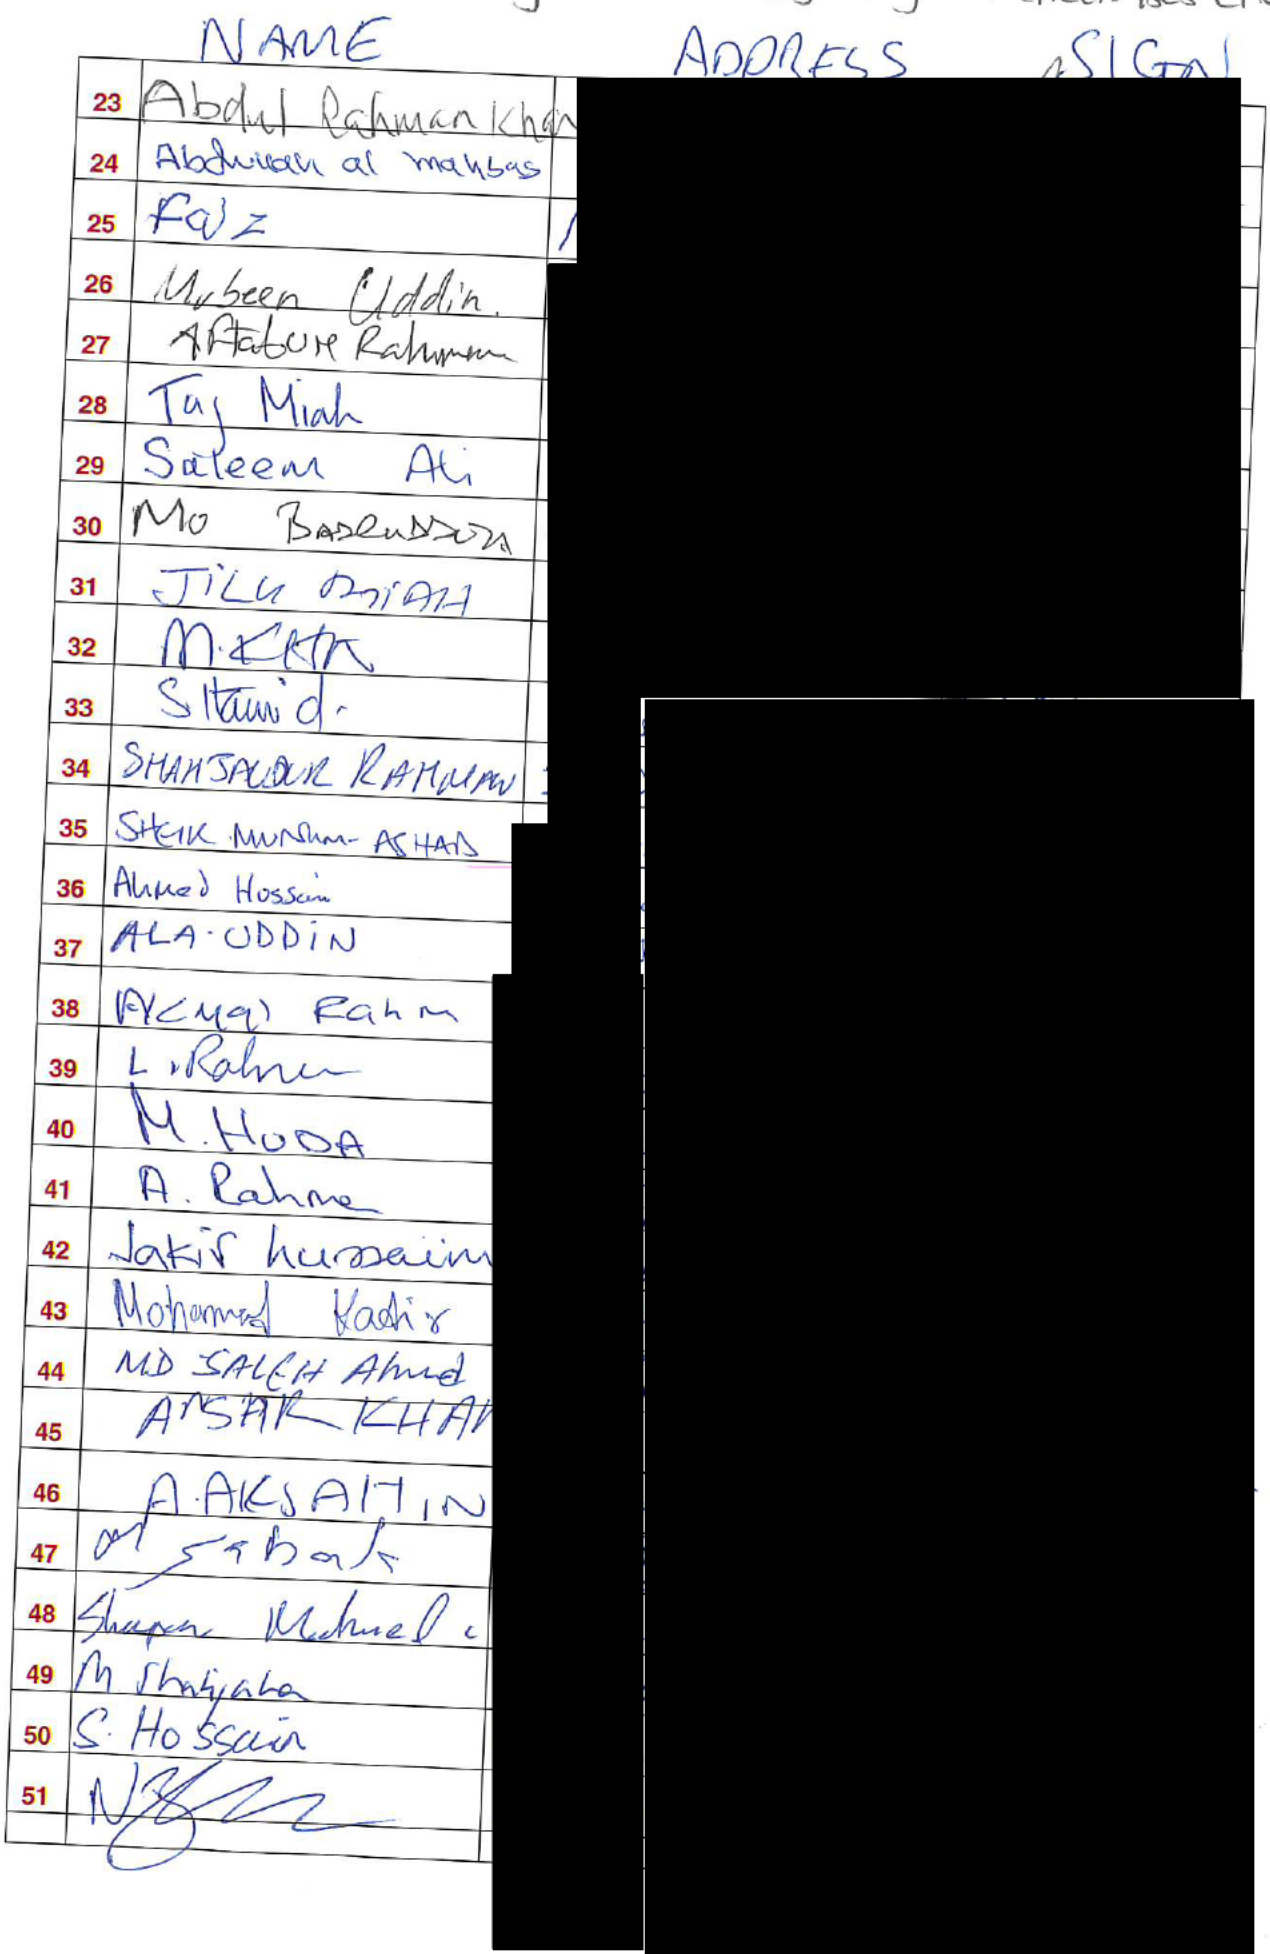 NAME ADDRESS SIGN
23 Abdul Rahman Khan
24 Abdullah al mahbas
25 Faiz
26 Mubeen Uddin.
27 Aftabur Rahman
28 Taj Miah
29 Saleem Ali
30 Mo
31 JiLU MiAH
32 M.
33 S Hamid.
34 RAHMAN
35 SHEIK ASHAD
36 Ahmed Hossain
37 ALA-UDDIN
38 Rahm
39 L. Rahman
40 M. HUDA
41 A. Rahman
42 Jakir hussain
43 Mohammed Kadir
44 MD SALEH Ahmed
45 ANSAR KHAN
46 A. AKSAHIN
47
48
49 M Shahjaha
50 S. Hossain
51